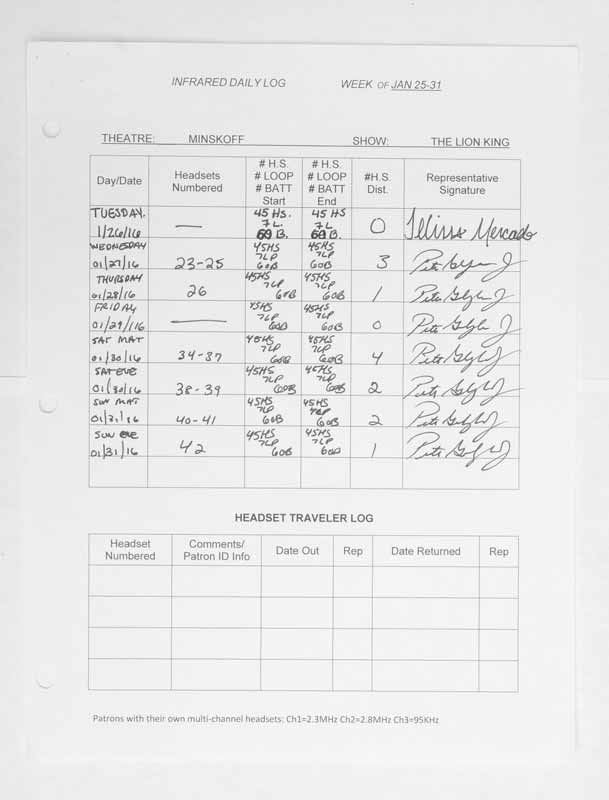 INFRARED DAILY LOG WEEK OF JAN 25-31
THEATRE: MINSKOFF SHOW: THE LION KING
Day/Date Headsets Numbered # H.S. # LOOP # BATT Start # H.S. # LOOP # BATT End #H.S. Dist. Representative Signature
TUESDAY. 1/26/16 — 45 HS. 7L. 60 B. 45 HS 7L 60 B. 0 Mercado
WEDNESDAY 01/27/16 23-25 45HS 7LP 60B 45HS 7LP 60B 3 Pete
THURSDAY 01/28/16 26 45HS 7LP 60B 45HS 7LP 60B 1 Pete
FRIDAY 01/29/116 — 45HS 7LP 60B 45HS 7LP 60B 0 Pete
SAT MAT 01/30/16 34-37 45HS 7LP 60B 45HS 7LP 60B 4 Pete
SAT EVE 01/30/16 38-39 45HS 7LP 60B 45HS 7LP 60B 2 Pete
SUN MAT 01/31/16 40-41 45HS 7LP 60B 45HS 7LP 60B 2 Pete
SUN EVE 01/31/16 42 45HS 7LP 60B 45HS 7LP 60B 1 Pete
HEADSET TRAVELER LOG
Headset Numbered Comments/ Patron ID Info Date Out Rep Date Returned Rep
Patrons with their own multi-channel headsets: Ch1=2.3MHz Ch2=2.8MHz Ch3=95KHz